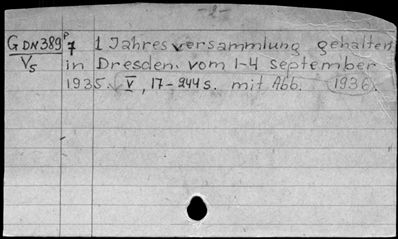 -2-
G DN389 P7 1 Jahresversammlung gehalten
V5 in Dresden. vom 1-4 september
1935. V, 17-244s. mit Abb. 1936.